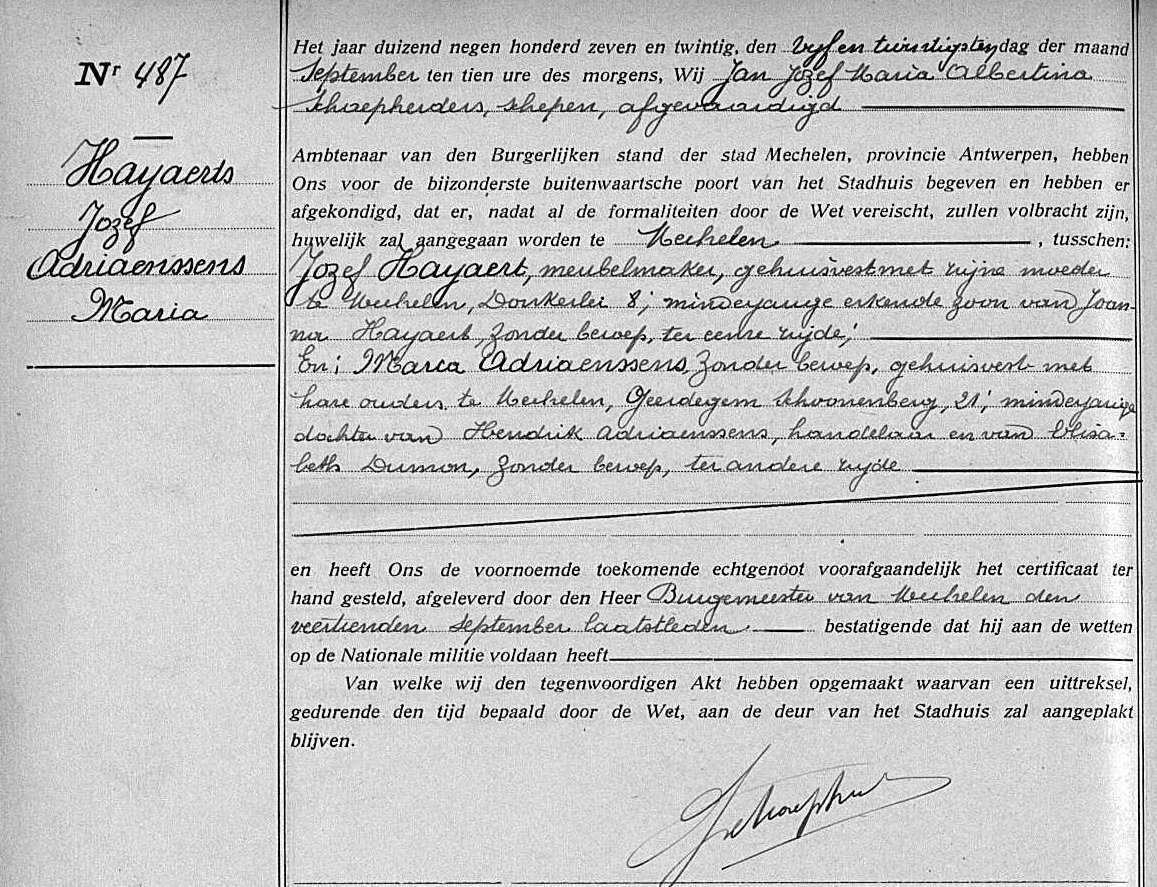 Nr 487
Hayaerts
Jozef
Adriaenssens
Maria
Het jaar duizend negen honderd zeven en twintig, den Vyf en twintigsten dag der maand
September ten tien ure des morgens, Wij Jan Jozef Maria Albertina
Schoepherders, schepen, afgevaardigd
Ambtenaar van den Burgerlijken stand der stad Mechelen, provincie Antwerpen, hebben
Ons voor de bijzonderste buitenwaartsche poort van het Stadhuis begeven en hebben er
afgekondigd, dat er, nadat al de formaliteiten door de Wet vereischt, zullen volbracht zijn,
huwelijk zal aangegaan worden te Mechelen, tusschen:
Jozef Hayaert, meubelmaker, gehuisvest met zijne moeder
te Mechelen, Donkerlei 8; minderjarige erkende zoon van Joan-
na Hayaert, zonder beroep, ter eene zijde;
En; Maria Adriaenssens, zonder beroep, gehuisvest met
hare ouders te Mechelen, Geerdegem Schoonenberg, 21; minderjarige
dochter van Hendrik Adriaenssens, handelaar en van Elisa-
beth Dumon, zonder beroep, ter andere zijde
en heeft Ons de voornoemde toekomende echtgenoot voorafgaandelijk het certificaat ter
hand gesteld, afgeleverd door den Heer Burgemeester van Mechelen den
veertienden September laatstleden bestatigende dat hij aan de wetten
op de Nationale militie voldaan heeft
Van welke wij den tegenwoordigen Akt hebben opgemaakt waarvan een uittreksel,
gedurende den tijd bepaald door de Wet, aan de deur van het Stadhuis zal aangeplakt
blijven.